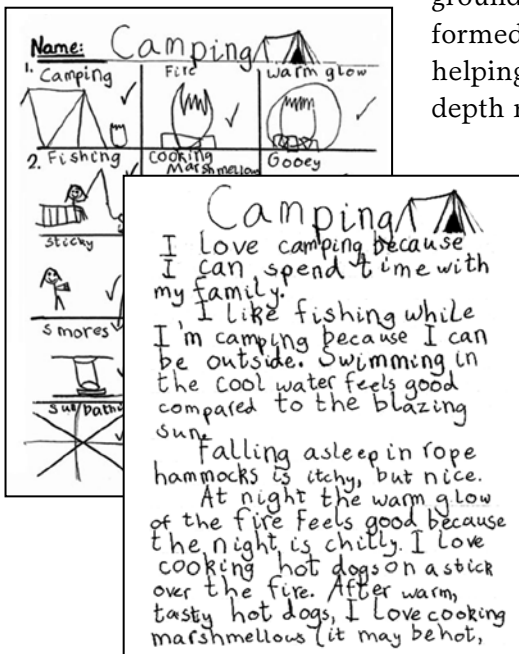 ground
formed
helping
depth
Name: Camping
1. Camping
Fire
warm glow
2. Fishing
Cooking
Marshmellow
Gooey
sticky
smores
Camping
I love camping because
I can spend time with
my family.
I like fishing while
I'm camping because I can
be outside. Swimming in
the cool water feels good
compared to the blazing
sun.
Falling asleep in rope
hammocks is itchy, but nice.
At night the warm glow
of the fire feels good because
the night is chilly. I love
cooking hot dogs on a stick
over the fire. After warm,
tasty hot dogs, I love cooking
marshmellows (it may be hot,